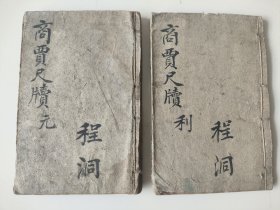 商賈尺牘
元
程洞
商賈尺牘
利
程洞